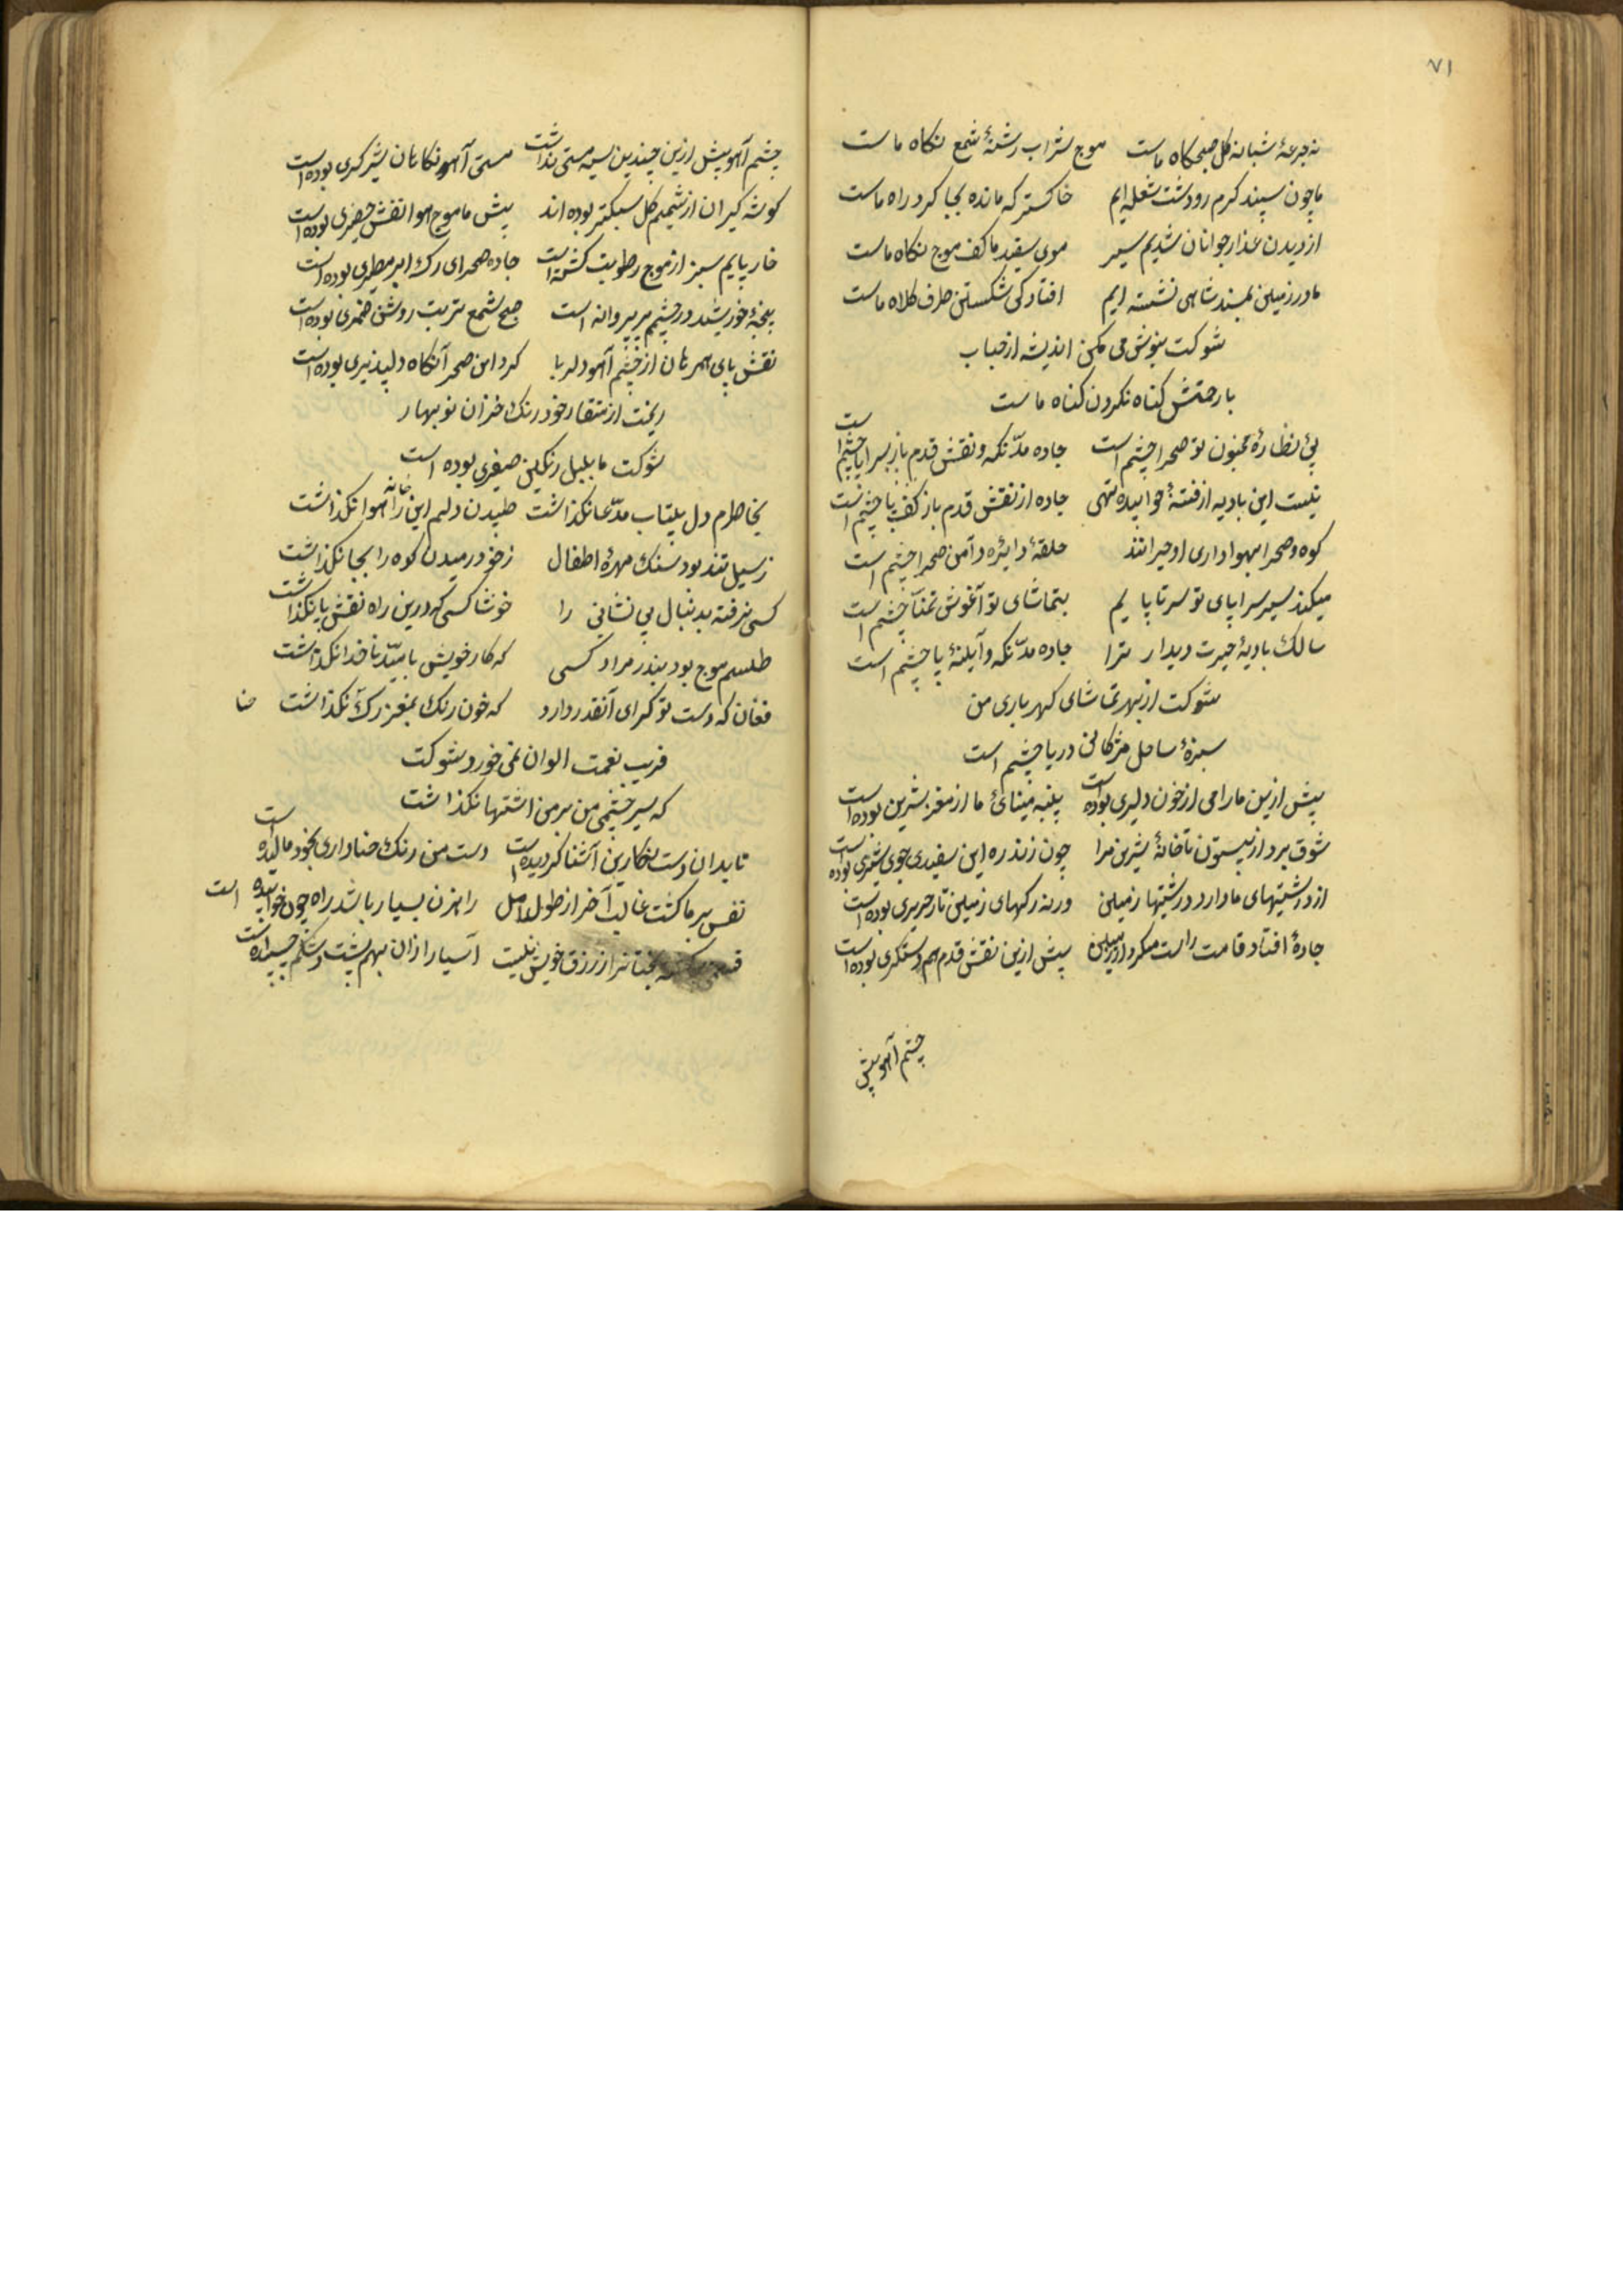 ۷۱
ته جرعهٔ شبانه کل صبحکاه ماست موج شراب رشتهٔ شمع نکاه ماست
ما چون سپند کرم رو دشت شعله ایم خاکستر که مانده بجا کرد راه ماست
از دیدن عذار جوانان شدیم سیر موی سفید ما کف موج نکاه ماست
ما در زمین بمسند شاهی نشسته ایم افتادکی شکستن طرف کلاه ماست
شوکت بنوش می مکن اندیشه از حباب
با رحمتش کناه نکردن کناه ماست
پی نظارهٔ مجنون تو صحرا چشم است جاده مدّ نکه و نقش قدم باز سراپا چشم است
نیست این بادیه از فتنهٔ خوابیده تهی جاده از نقش قدم باز کف پا چشم است
کوه و صحرا بهواداری او حیرانند حلقهٔ دایرهٔ دامن صحرا چشم است
میکند سیر سراپای تو سر تا پایم بتماشای تو آغوش تمنّا چشم است
سالک بادیهٔ حیرت دیدار ترا جاده مدّ نکه و آبلهٔ پا چشم است
شوکت از بهر تماشای کهرباری من
سبزهٔ ساحل مژکانی دریا چشم است
پیش ازین ما را می از خون دلیری بوده است پنبه مینائ ما از مغز شیرین بوده است
شوق برد از بیستون تا خانهٔ شیرین مرا چون زند ره این سفیدی جوی شیری بوده است
از درشتیهای ما دارد درشتیها زمین ورنه رکهای زمین تار حریری بوده است
جادهٔ افتاد قامت راست میکرد از زمین پیش ازین نقش قدم هم دستکیری بوده است
چشم آهو پیش
چشم آهو پیش ازین چندین سیه مستی نداشت مستی آهو نکاهان شیر کیری بوده است
کوشه کیران از شمیم کل سبکتر بوده اند پیش ما موج هوا نقش حصیری بوده است
خار پایم سبز از موج رطوبت کشته است جاده صحرای رک ابر مطیری بوده است
پنجهٔ خورشید در چشمم پر پروانه است صبح شمع تربت روشن ضمیری بوده است
نقش پای همرهان از چشم آهو دلربا کرد این صحرا نکاه دلپذیری بوده است
ریخت از منقار خود رنک خزان نوبهار
شوکت ما بلبل رنکین صفیری بوده است
بخاطرم دل بیتاب مدّعا نکذاشت طپیدن دلم این خانه را هوا نکذاشت
ز سیل تند بود سنک مهرهٔ اطفال ز خود رمیدن کوه را بجا نکذاشت
کسی نرفته بدنبال بی نشانی را خوشا کسی که درین راه نقش پا نکذاشت
طلسم موج بود بندر مراد کسی که کار خویش بامید ناخدا نکذاشت
فغان که دست تو کیرای آنقدر دارد که خون رنک بمغز رک حنا نکذاشت
فریب نعمت الوان نمی خورد شوکت
که سیر چشمی من بر من اشتها نکذاشت
تا بدان دست نکارین آشنا کردیده است دست من رنک حنا واری بخود مالیده است
نفس بر ما کشت غالب آخر از طول امل راهزن بسیار باشد راه چون خوابیده است
از رزق خویش نیست آسیا را زان بهم پشت و شکم چسپیده است